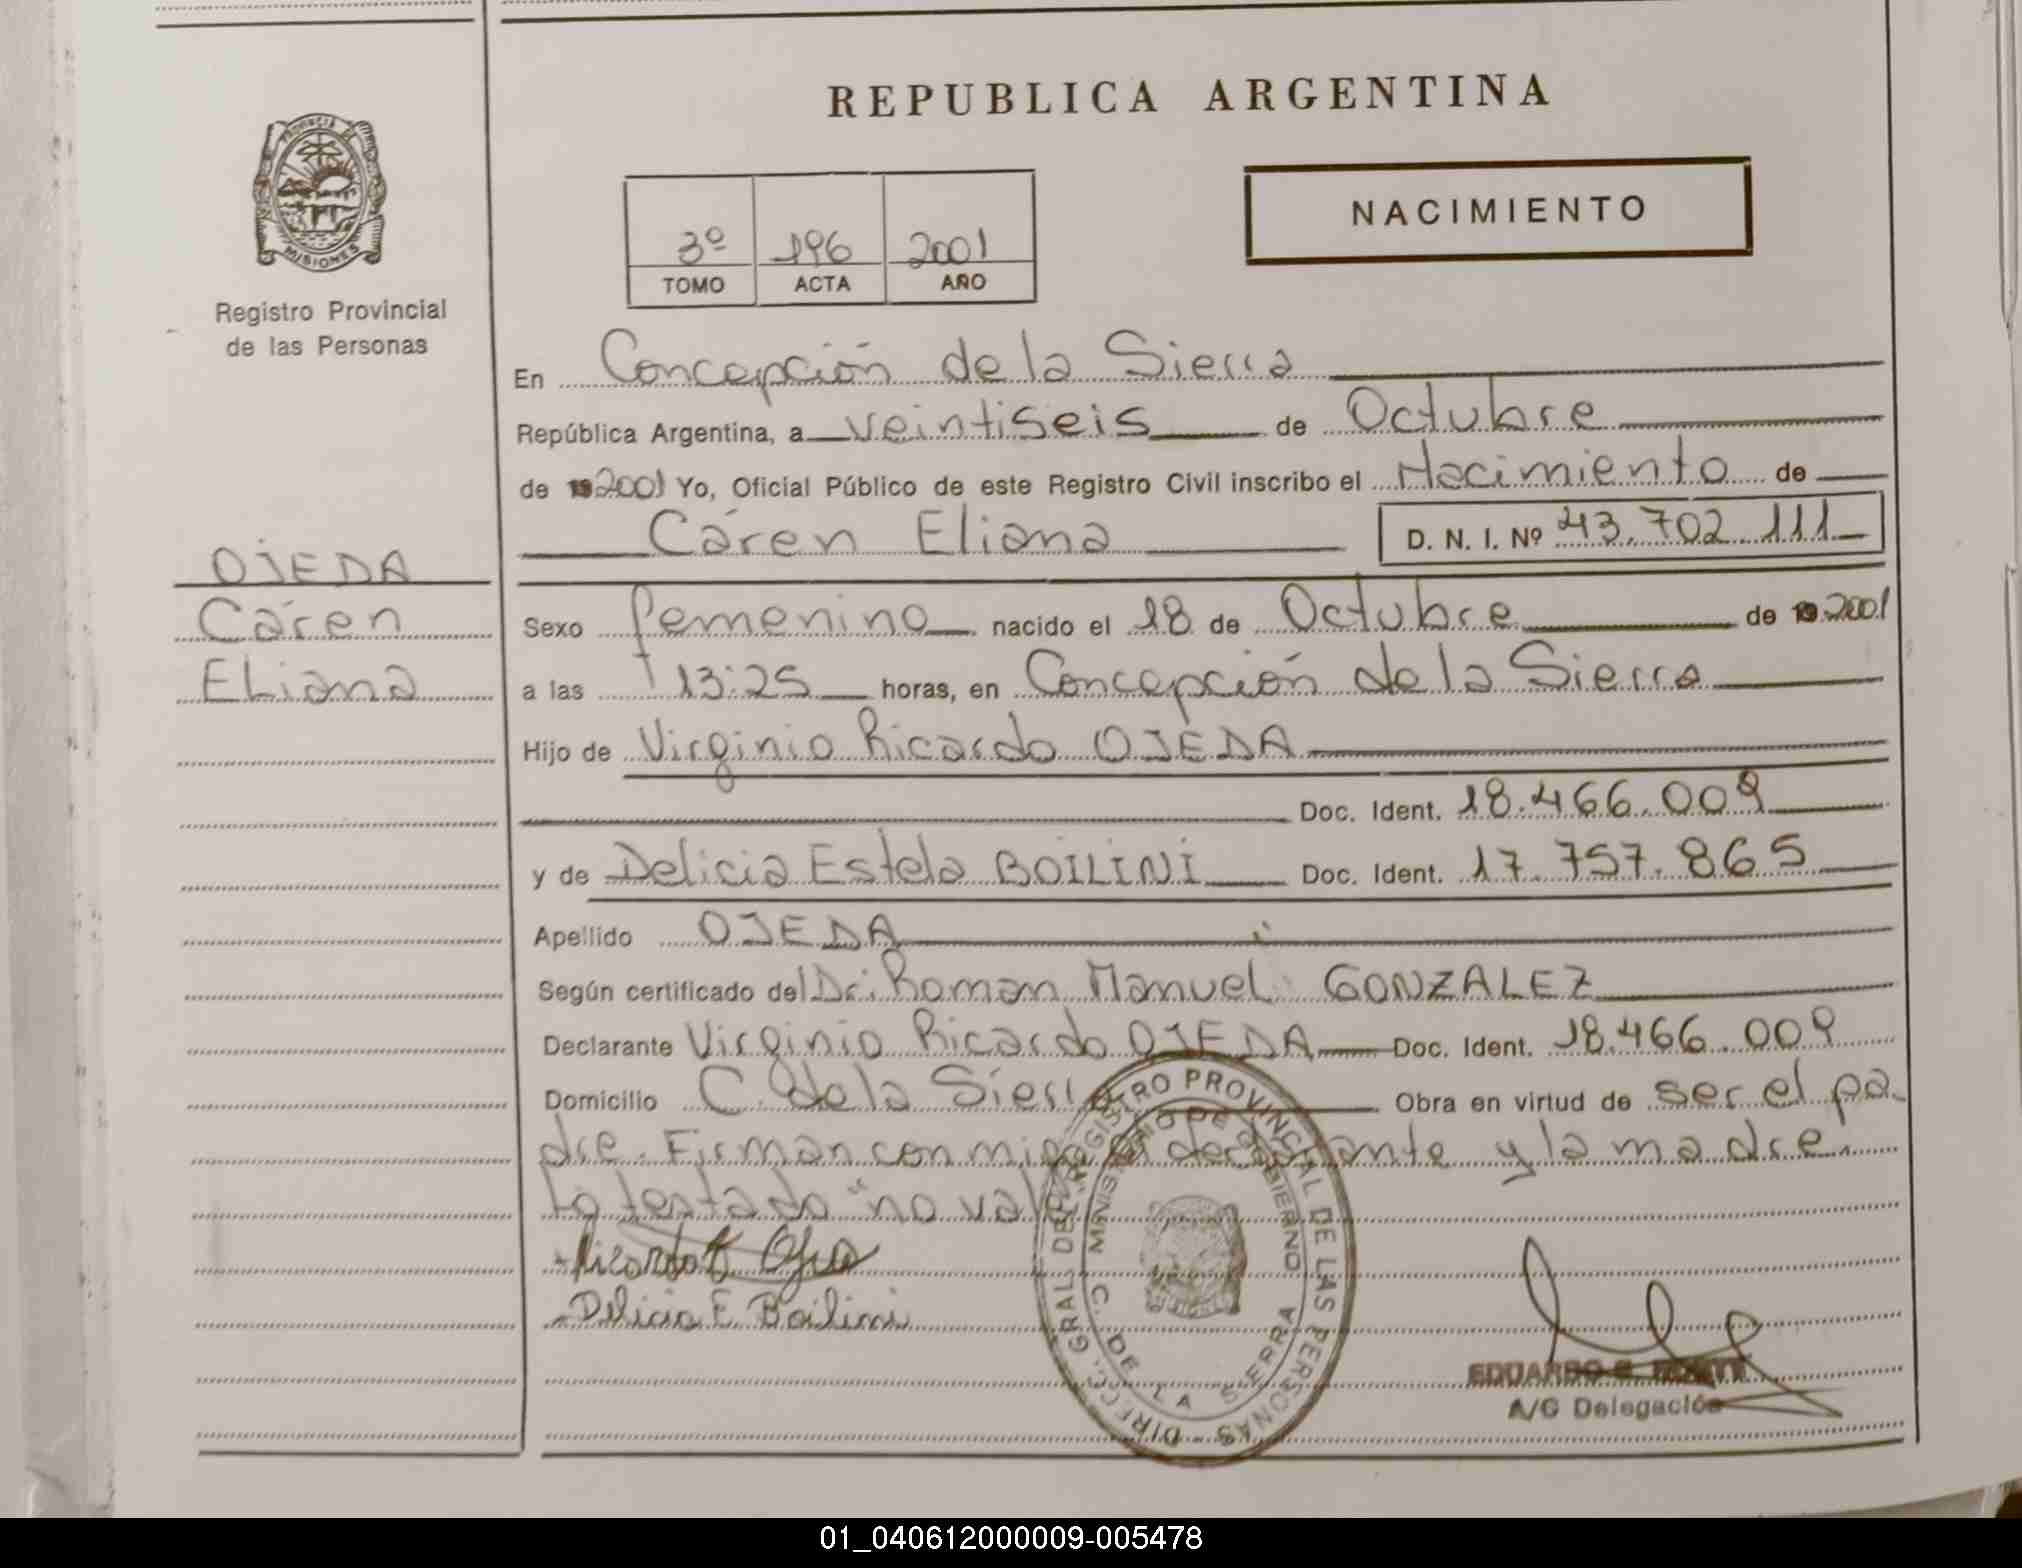 REPUBLICA ARGENTINA
PROVINCIA DE MISIONES
Registro Provincial
de las Personas
NACIMIENTO
3º 196 2001
TOMO ACTA AÑO
En Concepción de la Sierra
República Argentina, a veintiseis de Octubre
de 19 2001 Yo, Oficial Público de este Registro Civil inscribo el Nacimiento de
Cáren Eliana D. N. I. Nº 43.702.111
OJEDA
Cáren
Eliana
Sexo femenino nacido el 18 de Octubre de 19 2001
a las 13:25 horas, en Concepción de la Sierra
Hijo de Virginio Ricardo OJEDA
Doc. Ident. 18.466.009
y de Delicia Estela BOILINI Doc. Ident. 17.757.865
Apellido OJEDA
Según certificado del Dr. Roman Manuel GONZALEZ
Declarante Virginio Ricardo OJEDA Doc. Ident. 18.466.009
Domicilio C. de la Sierra Obra en virtud de ser el pa-
dre. Firman conmigo el declarante y la madre.
Lo testado "no vale
Ricardo Ojeda
Delicia E Boilini
DIRECC. GRAL. DEL REGISTRO PROVINCIAL DE LAS PERSONAS
MINISTERIO DE GOBIERNO
C. DE LA SIERRA
EDUARDO
A/C Delegación
01_040612000009-005478